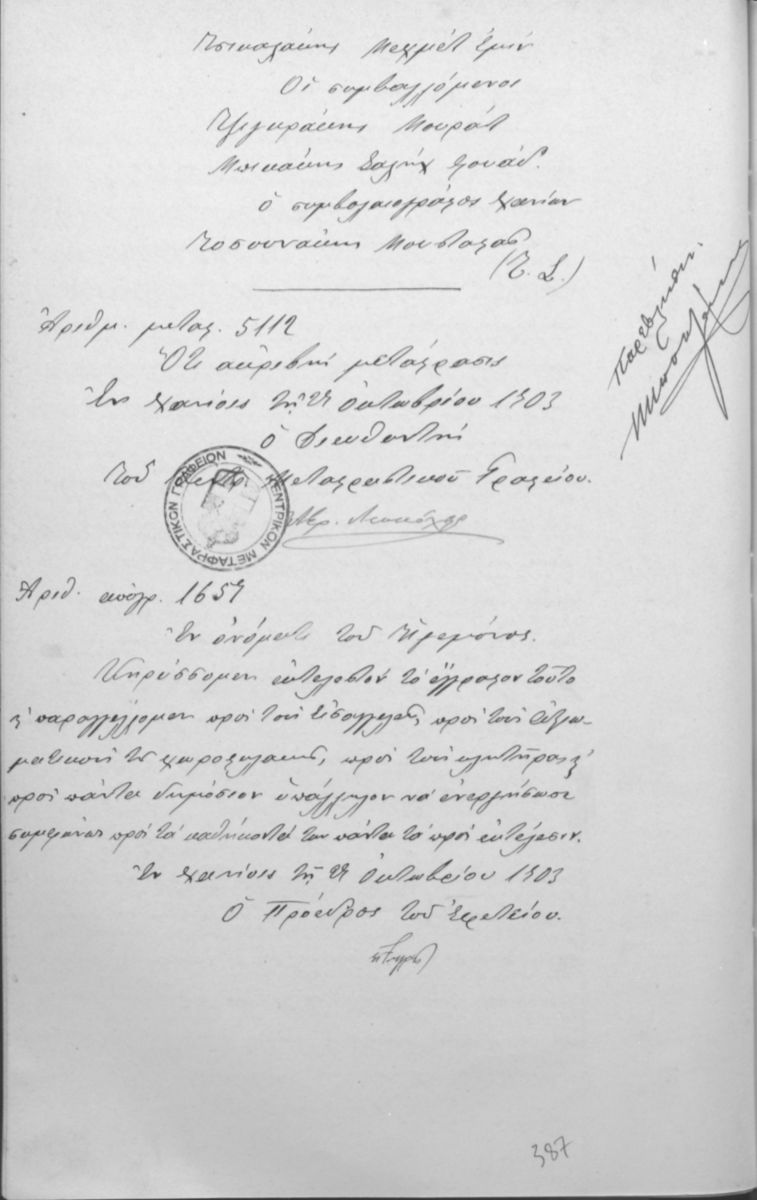 Τσικαλάκης Μεχμέτ Εμίν
Οι συμβαλλόμενοι
Μουράτ
Μπικάκης Σαλήχ Φουάδ.
ὁ συμβολαιογράφος Χανίων
Τοσουνάκης Μουσταφᾶς
(Τ. Σ.)
Ἀριθμ. μεταφ. 5112
Ὅτι ἀκριβὴς μετάφρασις
Ἐν Χανίοις τῇ Ὀκτωβρίου 1903
ὁ Διευθυντὴς
τοῦ Κεντρ. Μεταφραστικοῦ Γραφείου.
ΚΕΝΤΡΙΚΟΝ ΜΕΤΑΦΡΑΣΤΙΚΟΝ ΓΡΑΦΕΙΟΝ
Παρεβλήθη.
Ἀριθ. ἀπογρ.
Ἐν ὀνόματι τοῦ Ἡγεμόνος.
Κηρύσσομεν ἐκτελεστὸν τὸ ἔγγραφον τοῦτο
κ παραγγέλλομεν πρὸς τοὺς Εἰσαγγελεῖς, πρὸς τοὺς ἀξιω-
ματικοὺς τῆς χωροφυλακῆς, πρὸς τοὺς κλητῆρας κ
πρὸς πάντα δημόσιον ὑπάλληλον νὰ ἐνεργήσωσι
συμφώνως πρὸς τὰ καθήκοντά των πάντα τὰ πρὸς ἐκτέλεσιν.
Ἐν Χανίοις τῇ Ὀκτωβρίου 1903
Ὁ Πρόεδρος τοῦ Ἐφετείου.
387